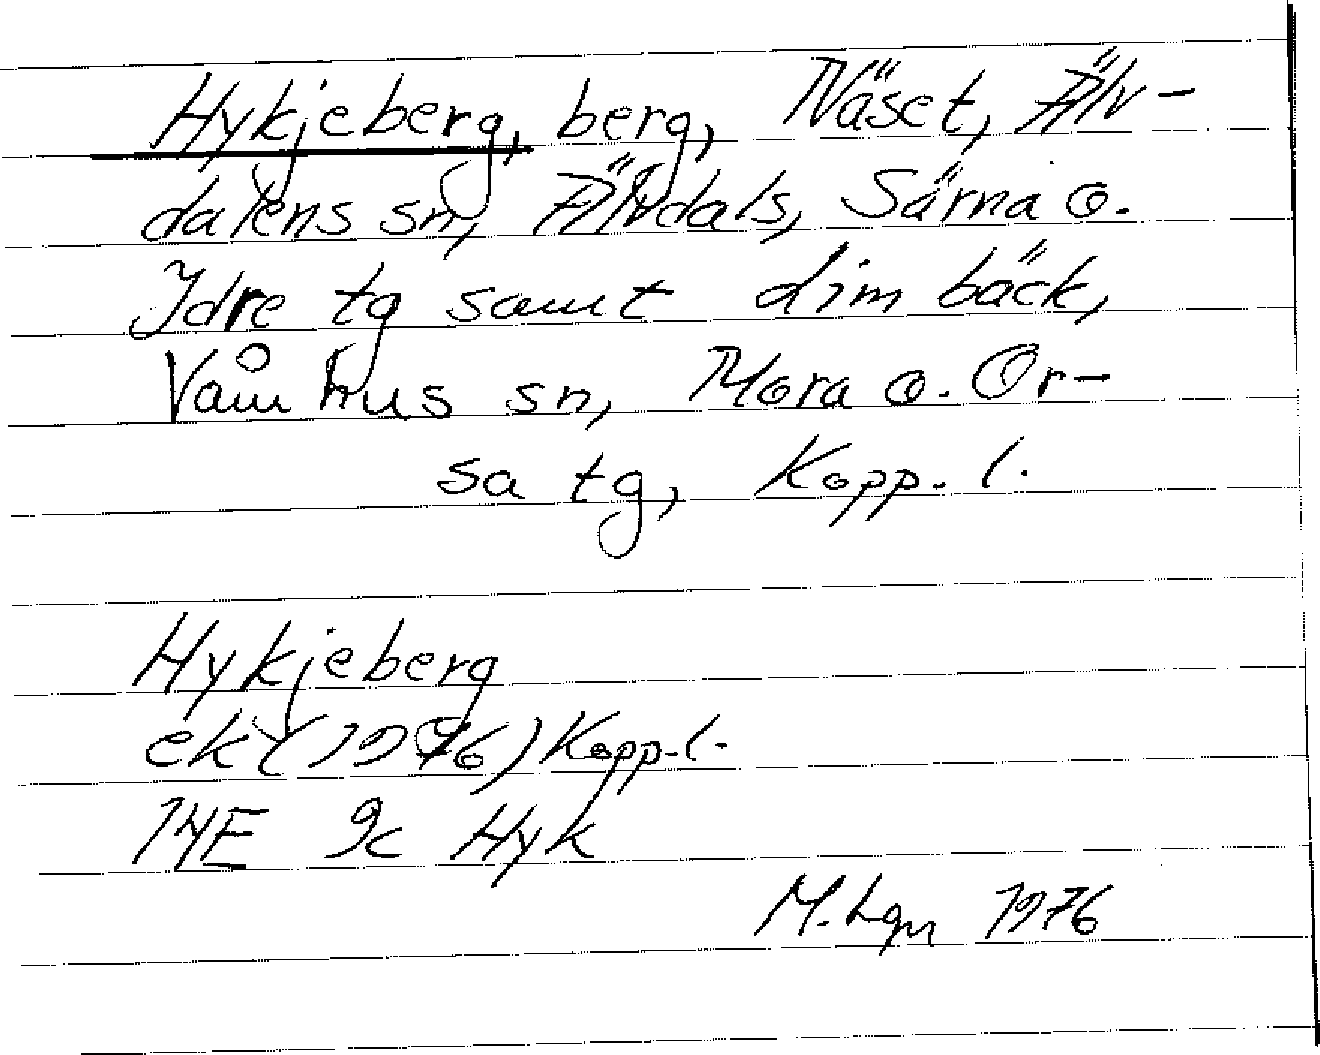 Hykjeberg, berg, Näset, Älv-
dalens sn, Älvdals, Särna o.
Idre tg samt Limbäck,
Våmhus sn, Mora o. Or-
sa tg, Kopp. l.
Hykjeberg
ek (1976) Kopp. l.
14E 9c Hyk
M. Lgn 1976